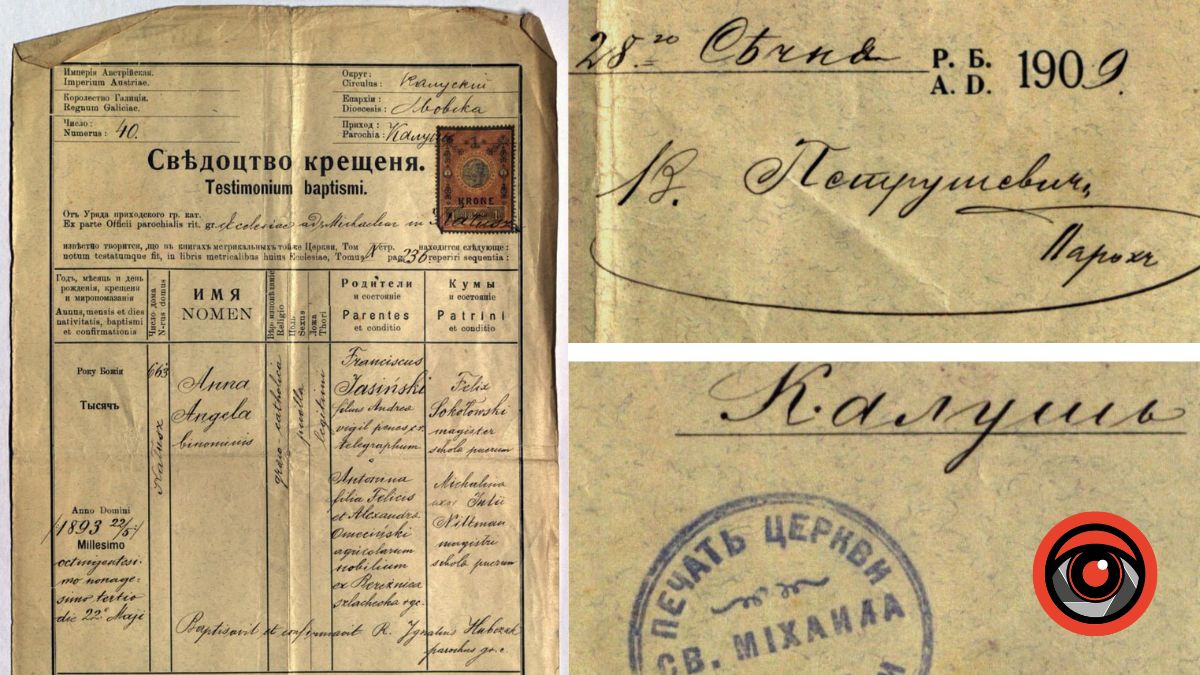 Имперія Австрійская.
Imperium Austriae.
Королєство Галиція.
Regnum Galiciae.
Число:
Numerus: 40.
Округ:
Circulus: Калускій
Епархія:
Dioecesis: Львовска
Приход:
Parochia: Калушь
1
KRONE
Свѣдоцтво крещеня.
Testimonium baptismi.
Отъ Уряда приходского гр. кат.
Ex parte Officii parochialis rit. gr. Ecclesiae ad S. Michaelem in Kałusz
извѣстно творится, що въ книгахъ метрикальныхъ тойже Церкви, Том стр. находится слѣдующе:
notum testatumque fit, in libris metricalibus huius Ecclesiae, Tomus V pag. 236 reperiri sequentia:
Годъ, мѣсяць и день
рожденія, крещеня
и миропомазанія
Annus, mensis et dies
nativitatis, baptismi
et confirmationis
Число дома
N-rus domus
ИМЯ
NOMEN
Вѣроисповѣданіє
Religio
Полъ
Sexus
Ложа
Thori
Родители
и состояніе
Parentes
et conditio
Кумы
и состояніе
Patrini
et conditio
Року Божія
Тысячъ
Anno Domini
1893 22/5
Millesimo
octingentesi-
mo nonage-
simo tertio
die 22º Maji
663
Kałusz
Anna
Angela
binominis
graeco catholica
puella
legitimi
Franciscus
Jasiński
filius Andrea
vigil penes cr.
telegraphum
Antonina
filia Felicis
et Alexandra
Omeciński
agricolarum
nobilium
ex Bereźnica
szlachecka
Felix
Sokołowski
magister
schola puerum
Michalina
uxor Julii
Nittman
magistri
schola puerum
Baptisavit et confirmavit R. Ignatius Hubczak
parochus gr. c.
28.го Сѣчня Р. Б. 1909.
A. D.
В. Петрушевичъ
Парохъ
Калушь
ПЕЧАТЬ ЦЕРКВИ
СВ. МІХАИЛА